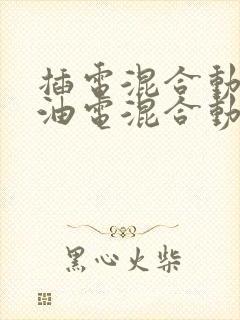 插電混合動
油電混合動
黑心火柴